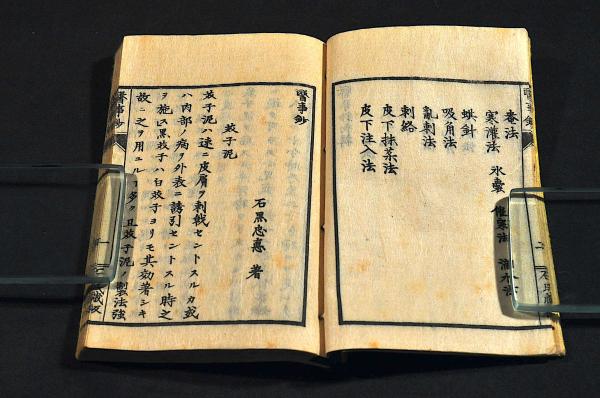 醫事鈔 二
罨法
寒灌法 氷嚢
蜞針
吸角法
亂刺法
刺絡
皮下抹薬法
皮下注入法
醫事鈔
石黒忠悳 著
芥子泥
芥子泥ハ速ニ皮膚ヲ刺戟セントスルカ或
ハ内部ノ病ヲ外表ニ誘引セントスル時之
ヲ施ス黒芥子ハ白芥子ヨリモ其効著シキ
故ニ之ヲ用ユルヿ多ク且芥子泥ノ製法強
醫事鈔 一